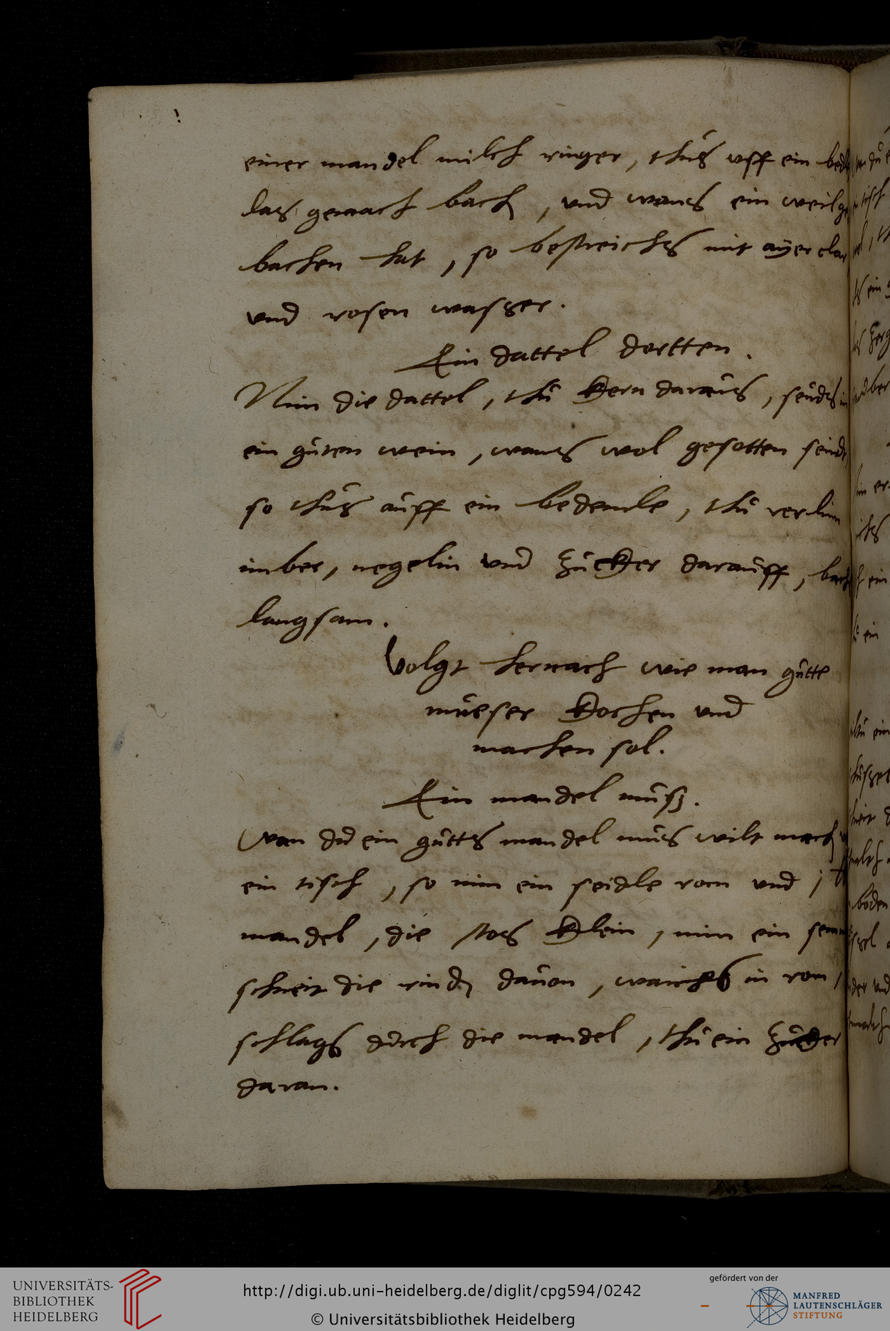 einer mandel milch ringer, thůs uff ein
las gemach bach, und wans ein weil
bachen hat, so bestreichs mit ayer clar
und rosen wasser.
Ein dattel dortten.
Nim die dattel, thů kern daraus, seuds in
ein gůten wein, wans wol gesotten seindt
so thůs auff ein bedemle, thů rerlin
imber, negelin und zucker darauff, bach
langsam.
Volgt hernach wie man gůtte
můeser kochen und
machen sol.
Ein mandel můsz.
Wan du ein gůtts mandel můes wilt mach
ein tisch, so nim ein seidle rom und j
mandel, die stos klein, nim ein
schneit die rinde dauon, waichs in rom,
schlags durch die mandel, thů ein zucker
daran.
UNIVERSITÄTS-
BIBLIOTHEK
HEIDELBERG
http://digi.ub.uni-heidelberg.de/diglit/cpg594/0242
© Universitätsbibliothek Heidelberg
gefördert von der
MANFRED
LAUTENSCHLÄGER
STIFTUNG